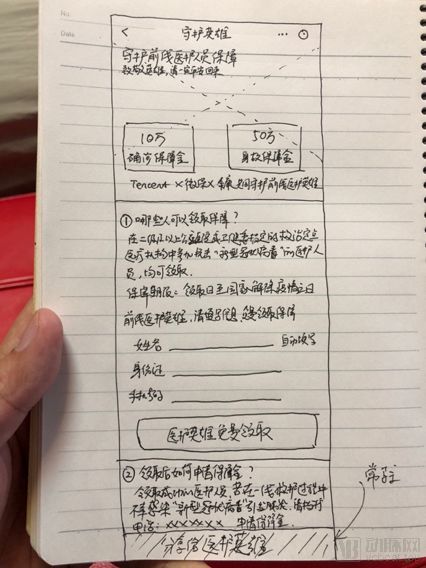 No.
Date
< 守护英雄 ··· ⊙
守护前线医护人员保障
致敬英雄，请一定平安回来
10万 50万
确诊保障金 身故保障金
Tencent × 微保 × 泰康 共同守护前线医护英雄
① 哪些人可以领取保障？
在二级及以上公立医院或卫健委指定的救治定点
医疗机构中参加救治“新型冠状病毒”的医护人
员，均可领取.
保障期限：领取日至国家解除疫情之日
前线医护英雄，请填写信息，免费领取保障
姓名 自动填写
身份证
手机号码
医护英雄免费领取
② 领取后如何申请保障金？
领取成功的医护人员 若在一线救护过程中
不幸感染“新型冠状病毒”引起肺炎，请拨打
电话：××××××× 申请保障金.
分享给医护英雄
常驻
动脉网